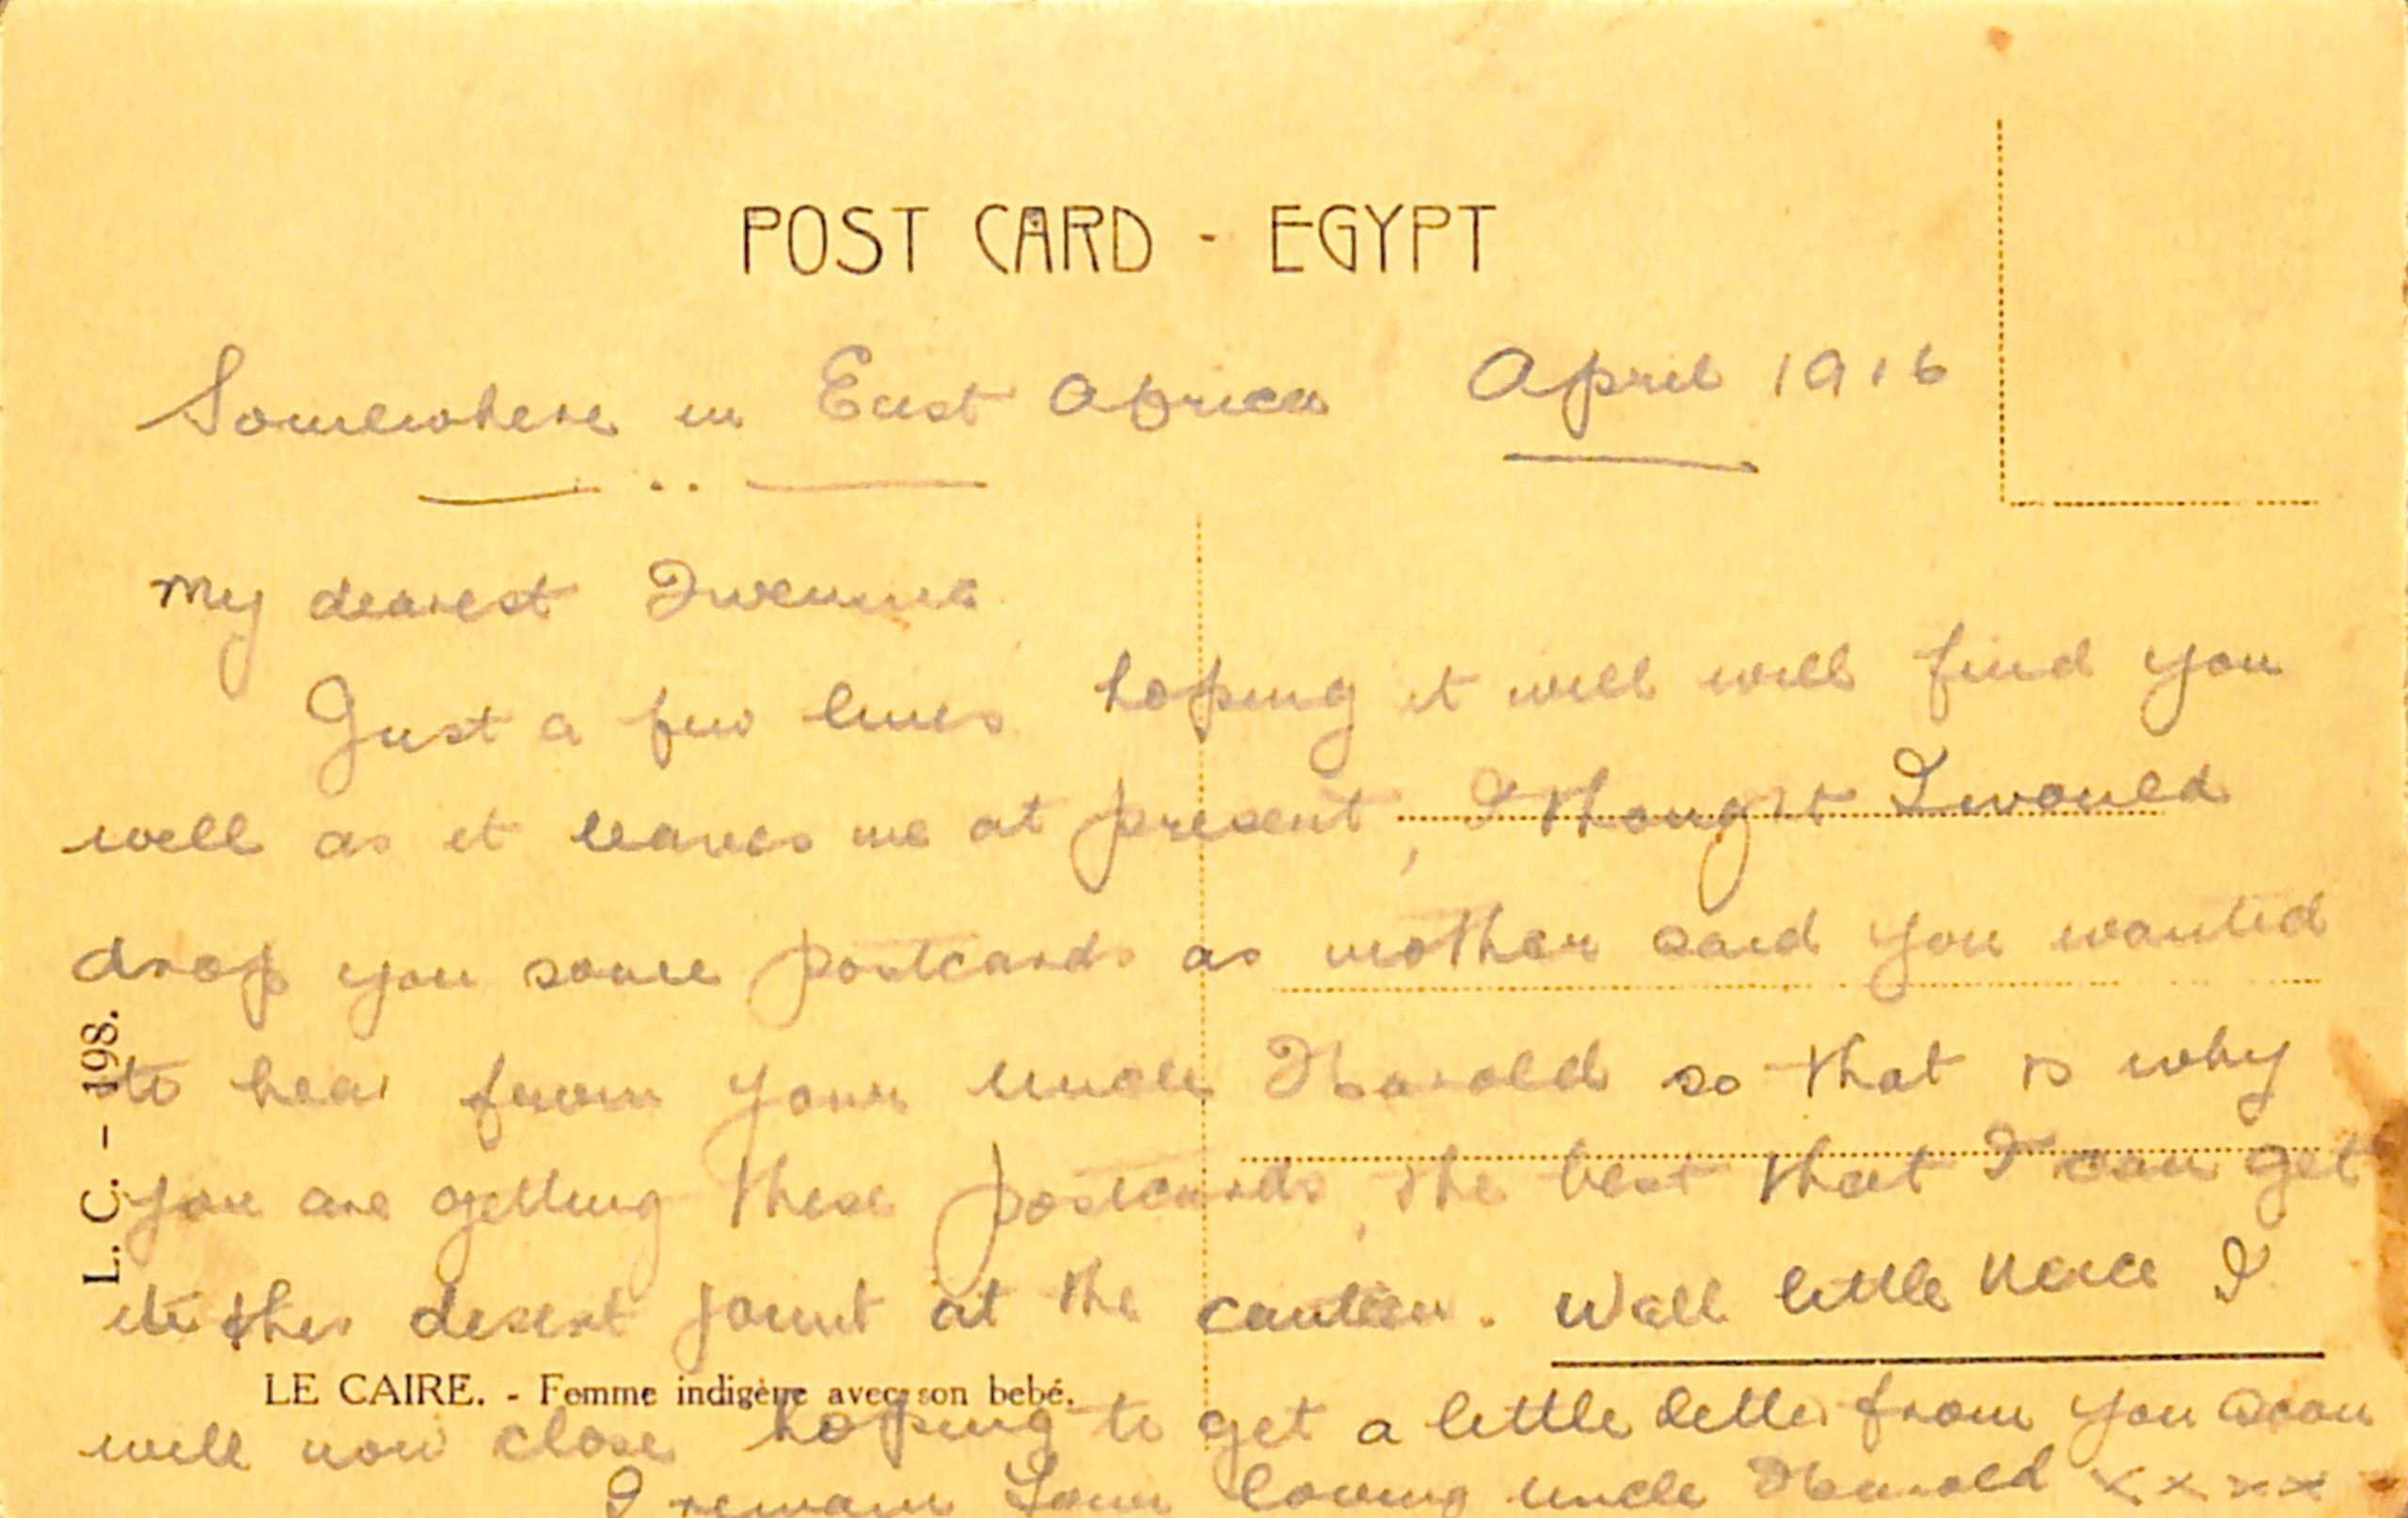 POST CARD - EGYPT
Somewhere in East Africa April 1916
My dearest
Just a few lines hoping it will will find you
well as it leaves me at present, I thought I would
drop you some postcards as mother said you wanted
to hear from your uncle Harold so that is why
you are getting these postcards, the best that I can get
this desert at the canteen. Well little neice I
LE CAIRE. - Femme indigène avec son bebé.
will now close hoping to get a little letter from you soon
I remain Your loving uncle Harold x x x x
L. C. - 198.